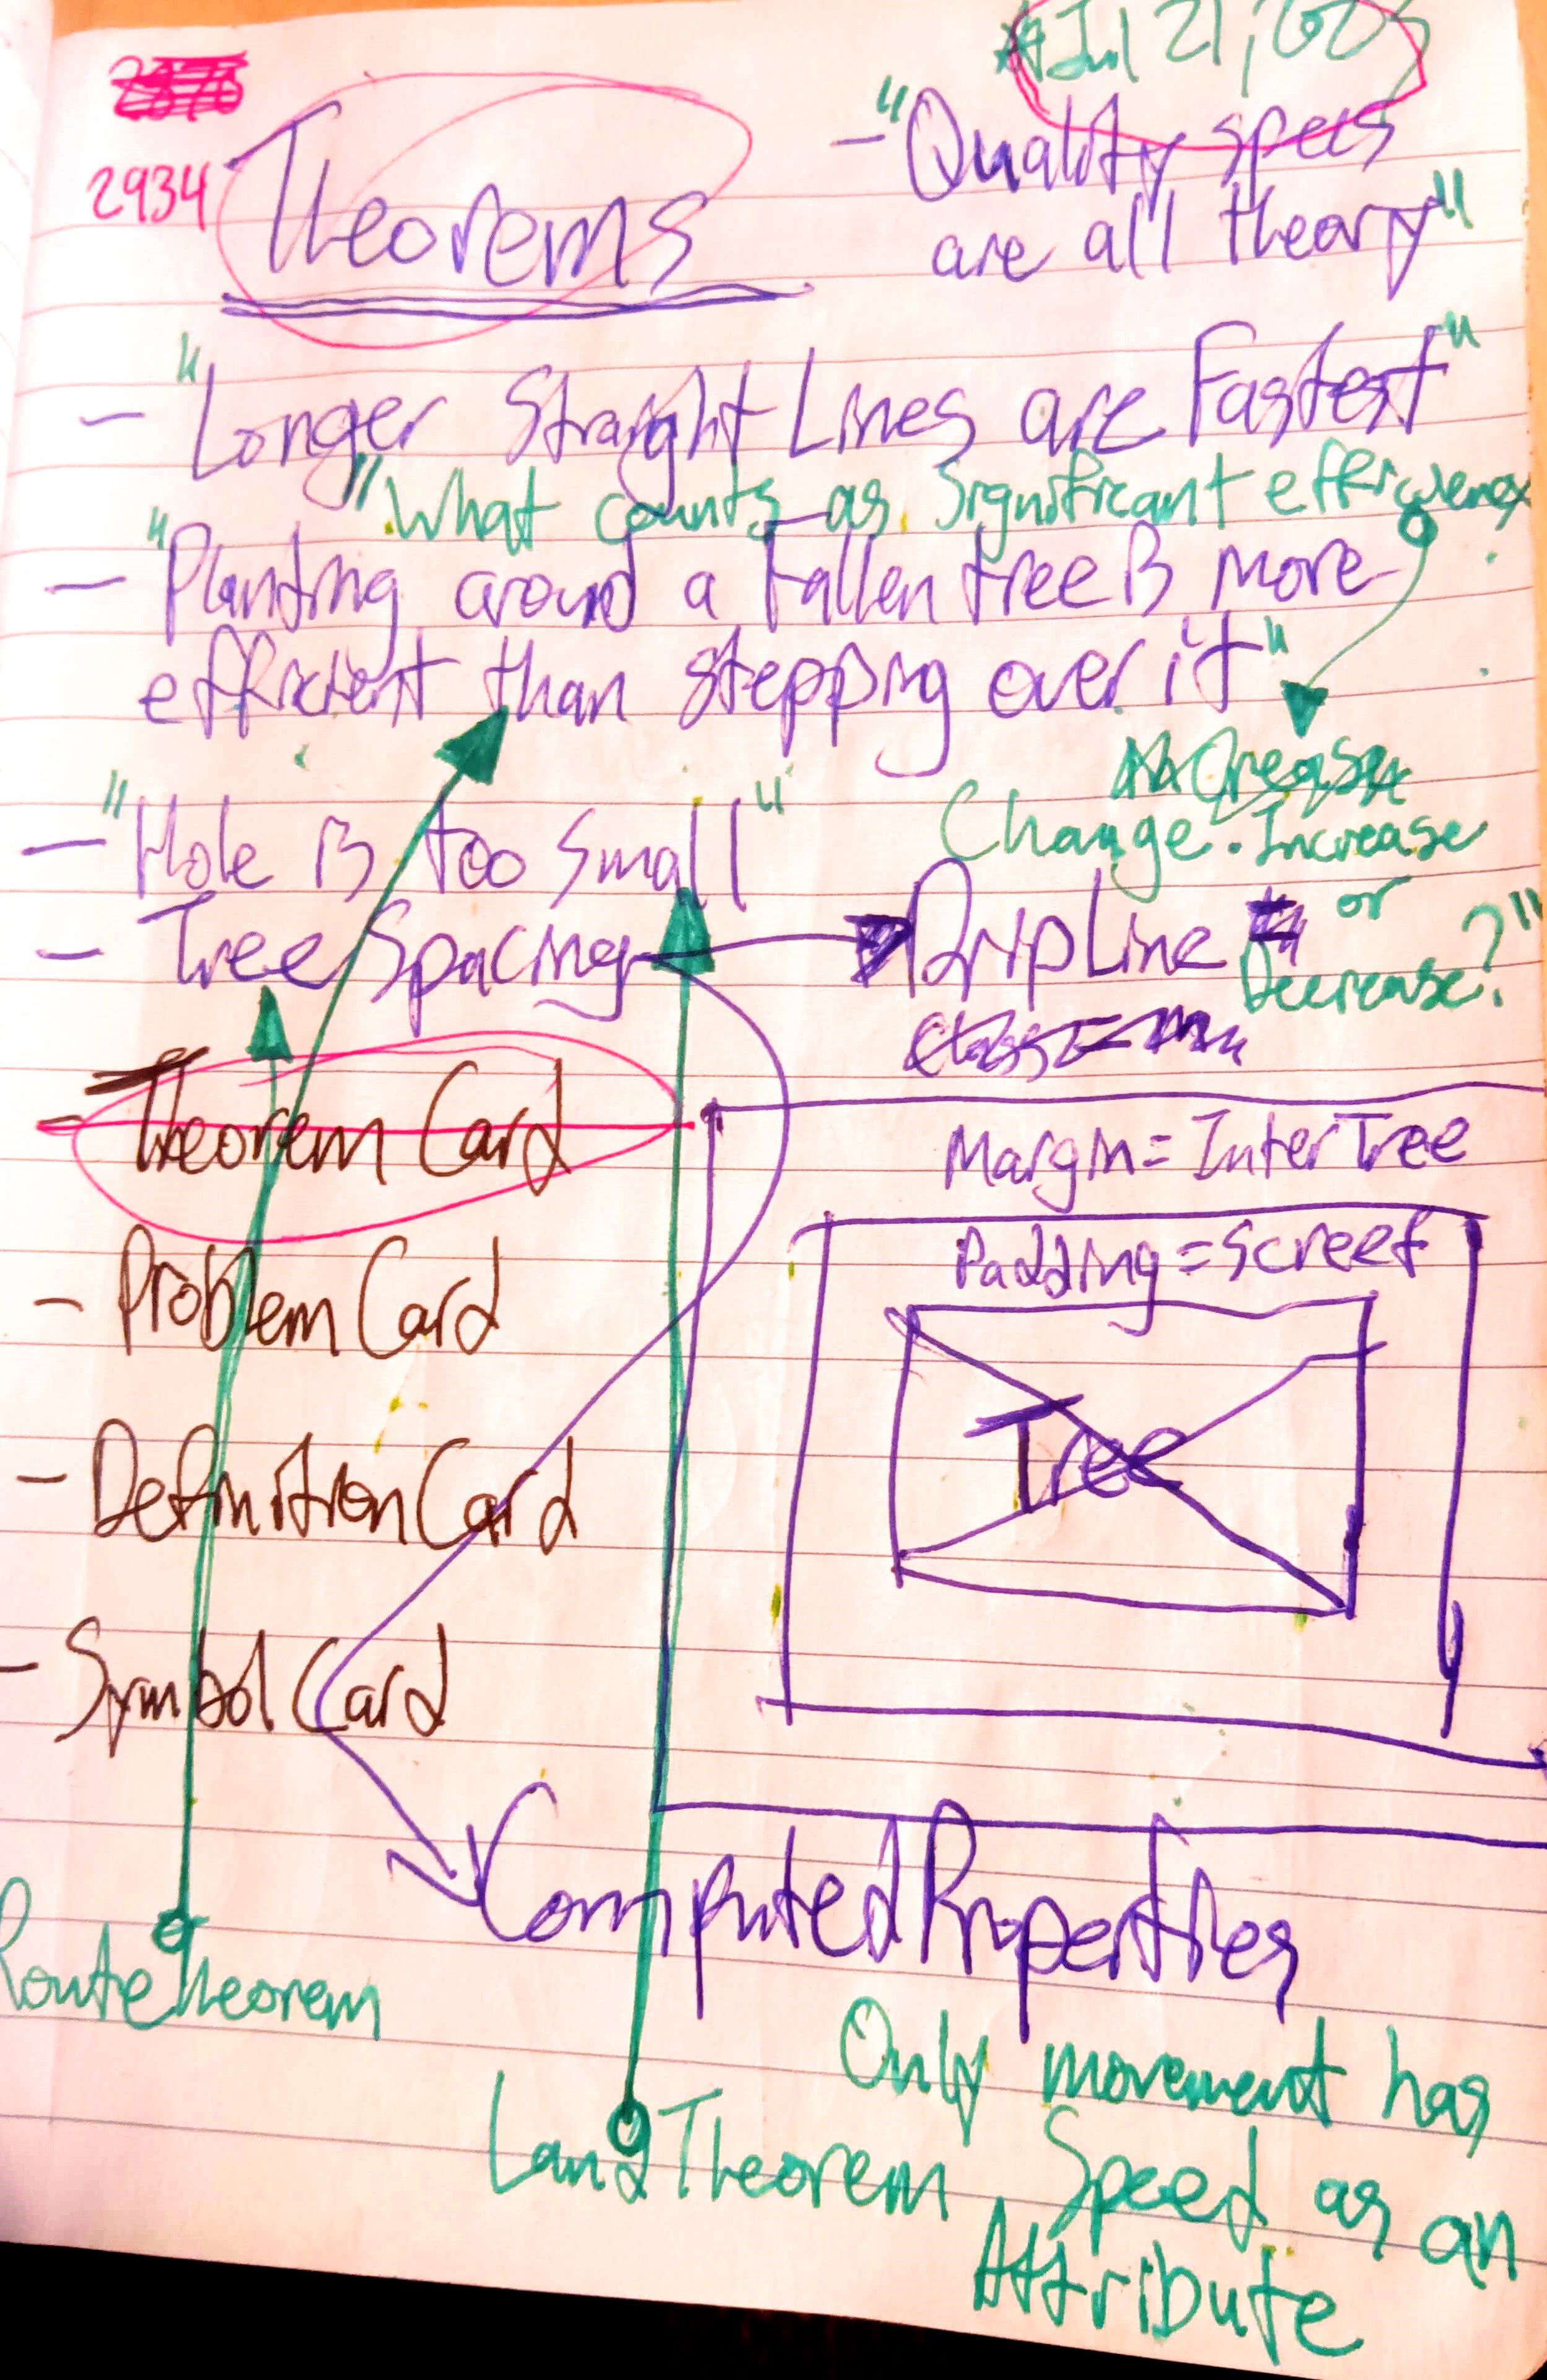 Jul 21,
2934
Theorems
- "Quality specs
are all theory"
- "Longer Straight Lines are Fastest"
"What counts as significant efficiency
- "Planting around a fallen tree is more
efficient than stepping over it"
Change. Increase
or
Decrease?"
- "Hole is too small"
- Tree Spacing
DripLine
- Theorem Card
- Problem Card
- Definition Card
- Symbol Card
Margin = InterTree
Padding = Screef
Tree
Computed Properties
RouteTheorem
LandTheorem
Only movement has
Speed as an
Attribute